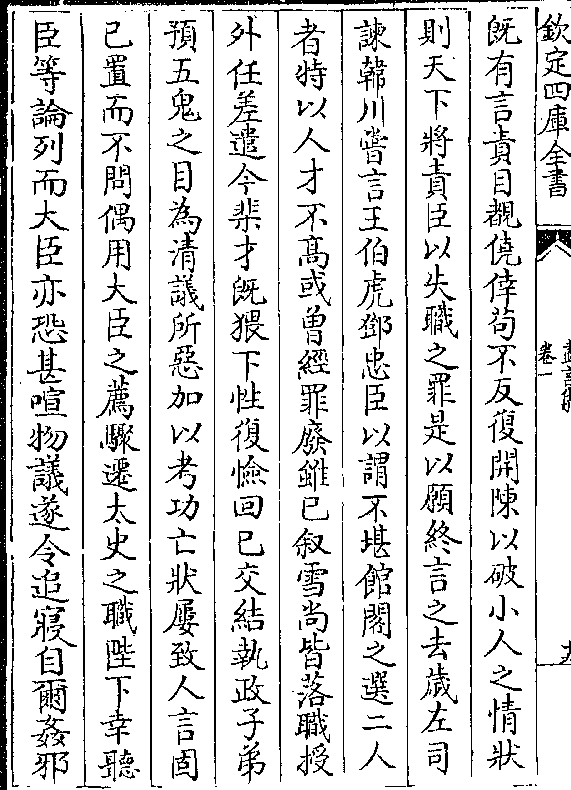 欽定四庫全書
盡言集
卷一
既有言責目覩僥倖苟不反復開陳以破小人之情狀
則天下將責臣以失職之罪是以願終言之去歲左司
諫韓川嘗言王伯虎鄧忠臣以謂不堪館閣之選二人
者特以人才不髙或曽經罪廢雖已叙雪尚皆落職授
外任差遣今棐才既猥下性復憸回已交結執政子弟
預五鬼之目為清議所惡加以考功亡狀屢致人言固
已置而不問偶用大臣之薦驟遷太史之職陛下幸聽
臣等論列而大臣亦恐甚喧物議遂令追寢自爾姦邪